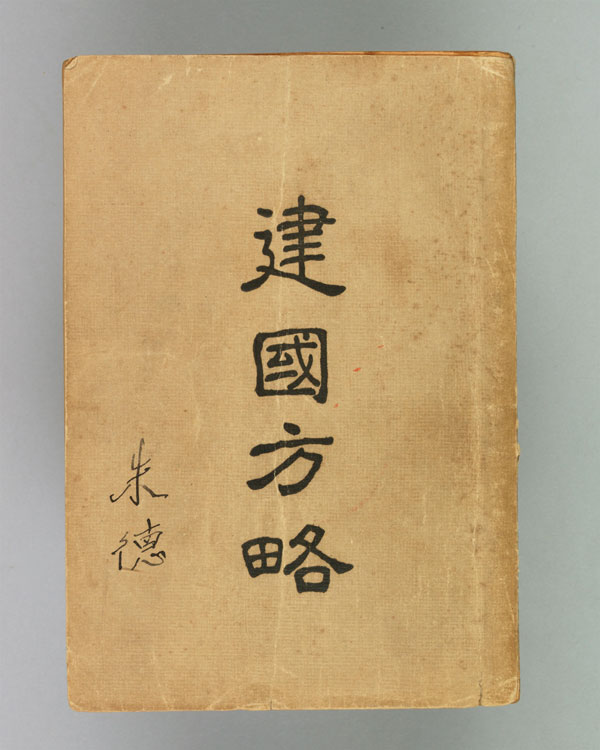 建國方略
朱德